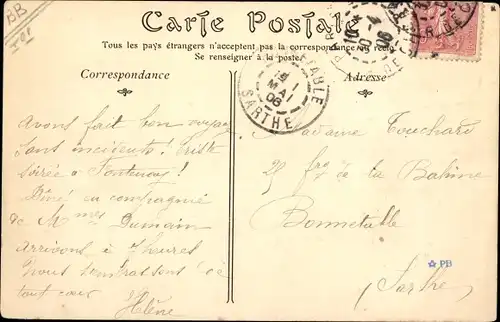 BB
Carte Postale
Tous les pays étrangers n'acceptent pas la correspondance au recto
Se renseigner à la poste.
Correspondance
Adresse
BONNETABLE
1 MAI 06
SARTHE
Avons fait bon voyage
sans incidents! triste
soirée à Fontenay!
Dîné en compagnie
de Mmes Dumain
Arrivons à 7 heures
Vous embrassent de
tout cœur
Hélène
Madame Touchard
25 frg de la Baleine
Bonnetable
PB
Sarthe